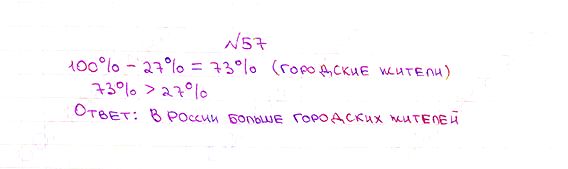 №57
100% - 27% = 73% (ГОРОДСКИЕ ЖИТЕЛИ)
73% > 27%
ОТВЕТ: В РОССИИ БОЛЬШЕ ГОРОДСКИХ ЖИТЕЛЕЙ